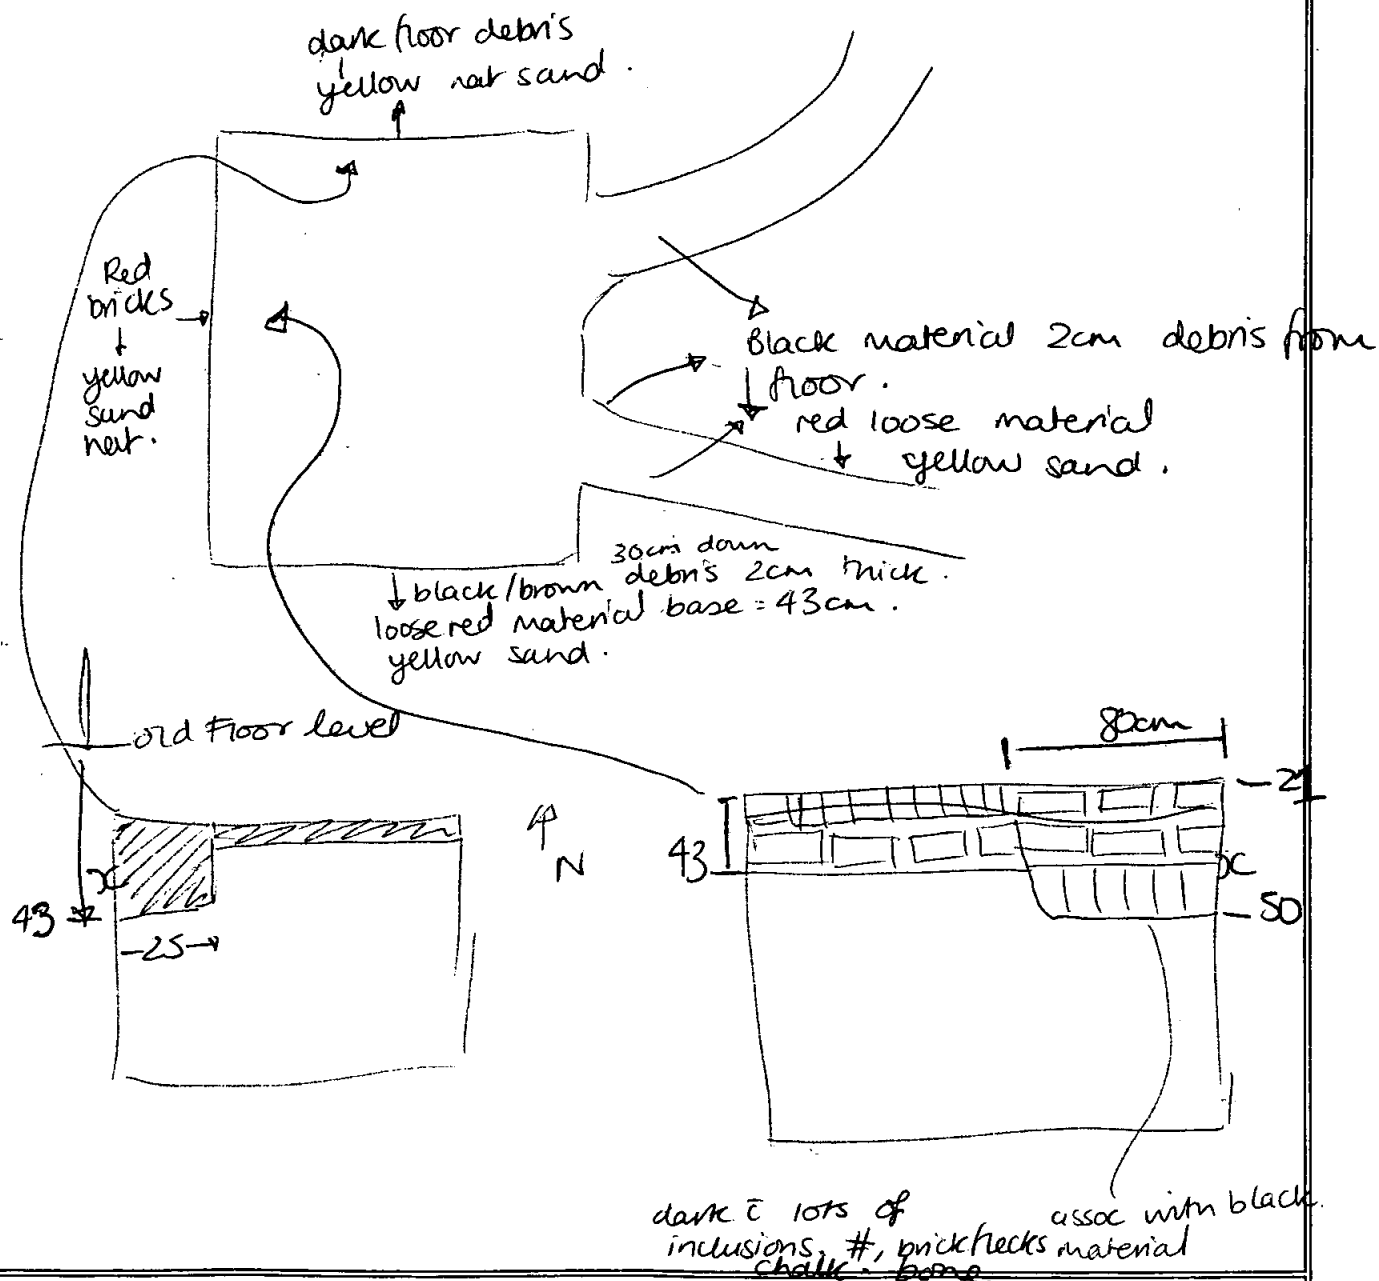 dark floor debris
yellow nat sand.
Red
bricks
yellow
sand
nat.
Black material 2cm debris from
floor.
red loose material
yellow sand.
30cm down
black/brown debris 2cm thick.
loose red material base = 43cm.
yellow sand.
old Floor level
80cm
43
N
43
25
50
dark c̄ lots of
inclusions, #, brick flecks
chalk. bone
assoc with black
material